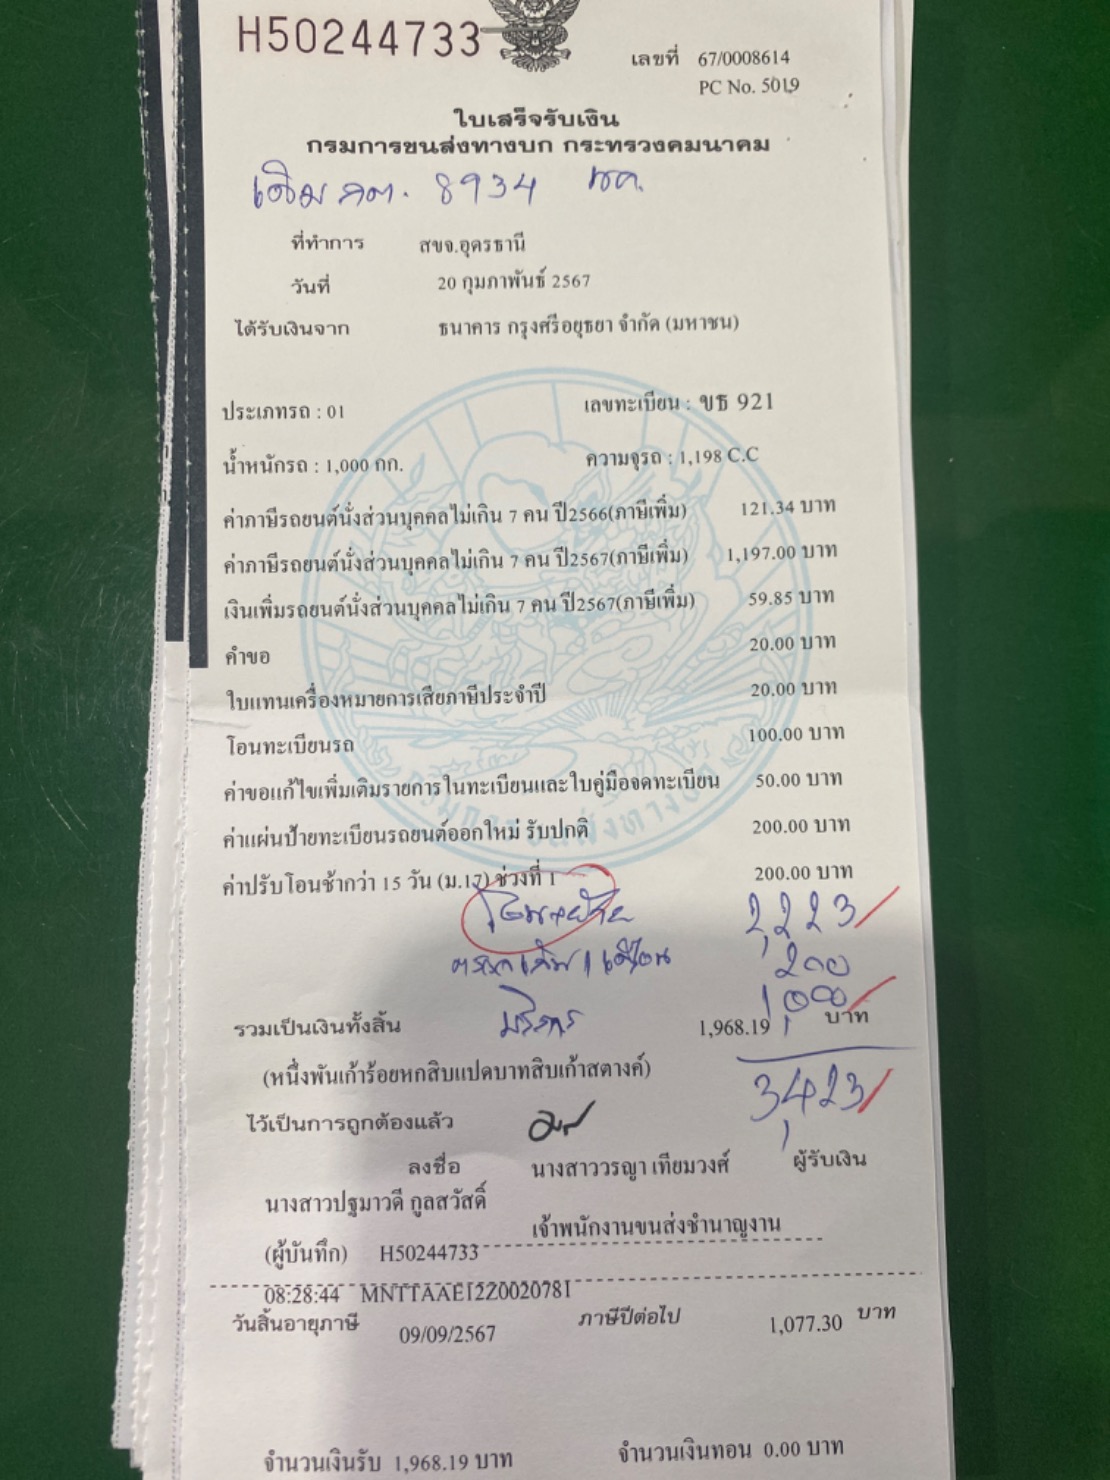 H50244733
เลขที่ 67/0008614
PC No. 5019
ใบเสร็จรับเงิน
กรมการขนส่งทางบก กระทรวงคมนาคม
เดิม กต. 8934 ชค.
ที่ทำการ สขจ.อุดรธานี
วันที่ 20 กุมภาพันธ์ 2567
ได้รับเงินจาก ธนาคาร กรุงศรีอยุธยา จำกัด (มหาชน)
ประเภทรถ : 01 เลขทะเบียน : ขธ 921
น้ำหนักรถ : 1,000 กก. ความจุรถ : 1,198 C.C
ค่าภาษีรถยนต์นั่งส่วนบุคคลไม่เกิน 7 คน ปี2566(ภาษีเพิ่ม) 121.34 บาท
ค่าภาษีรถยนต์นั่งส่วนบุคคลไม่เกิน 7 คน ปี2567(ภาษีเพิ่ม) 1,197.00 บาท
เงินเพิ่มรถยนต์นั่งส่วนบุคคลไม่เกิน 7 คน ปี2567(ภาษีเพิ่ม) 59.85 บาท
คำขอ 20.00 บาท
ใบแทนเครื่องหมายการเสียภาษีประจำปี 20.00 บาท
โอนทะเบียนรถ 100.00 บาท
ค่าขอแก้ไขเพิ่มเติมรายการในทะเบียนและใบคู่มือจดทะเบียน 50.00 บาท
ค่าแผ่นป้ายทะเบียนรถยนต์ออกใหม่ รับปกติ 200.00 บาท
ค่าปรับโอนช้ากว่า 15 วัน (ม.17) ช่วงที่ 1 200.00 บาท
2,223
200
บริการ 1,000
รวมเป็นเงินทั้งสิ้น 1,968.19 บาท
(หนึ่งพันเก้าร้อยหกสิบแปดบาทสิบเก้าสตางค์)
3,423
ไว้เป็นการถูกต้องแล้ว
ลงชื่อ นางสาววรญา เทียมวงศ์ ผู้รับเงิน
นางสาวปฐมาวดี กูลสวัสดิ์
เจ้าพนักงานขนส่งชำนาญงาน
(ผู้บันทึก) H50244733
08:28:44 MNTTAAE12Z0020781
วันสิ้นอายุภาษี 09/09/2567 ภาษีปีต่อไป 1,077.30 บาท
จำนวนเงินรับ 1,968.19 บาท จำนวนเงินทอน 0.00 บาท